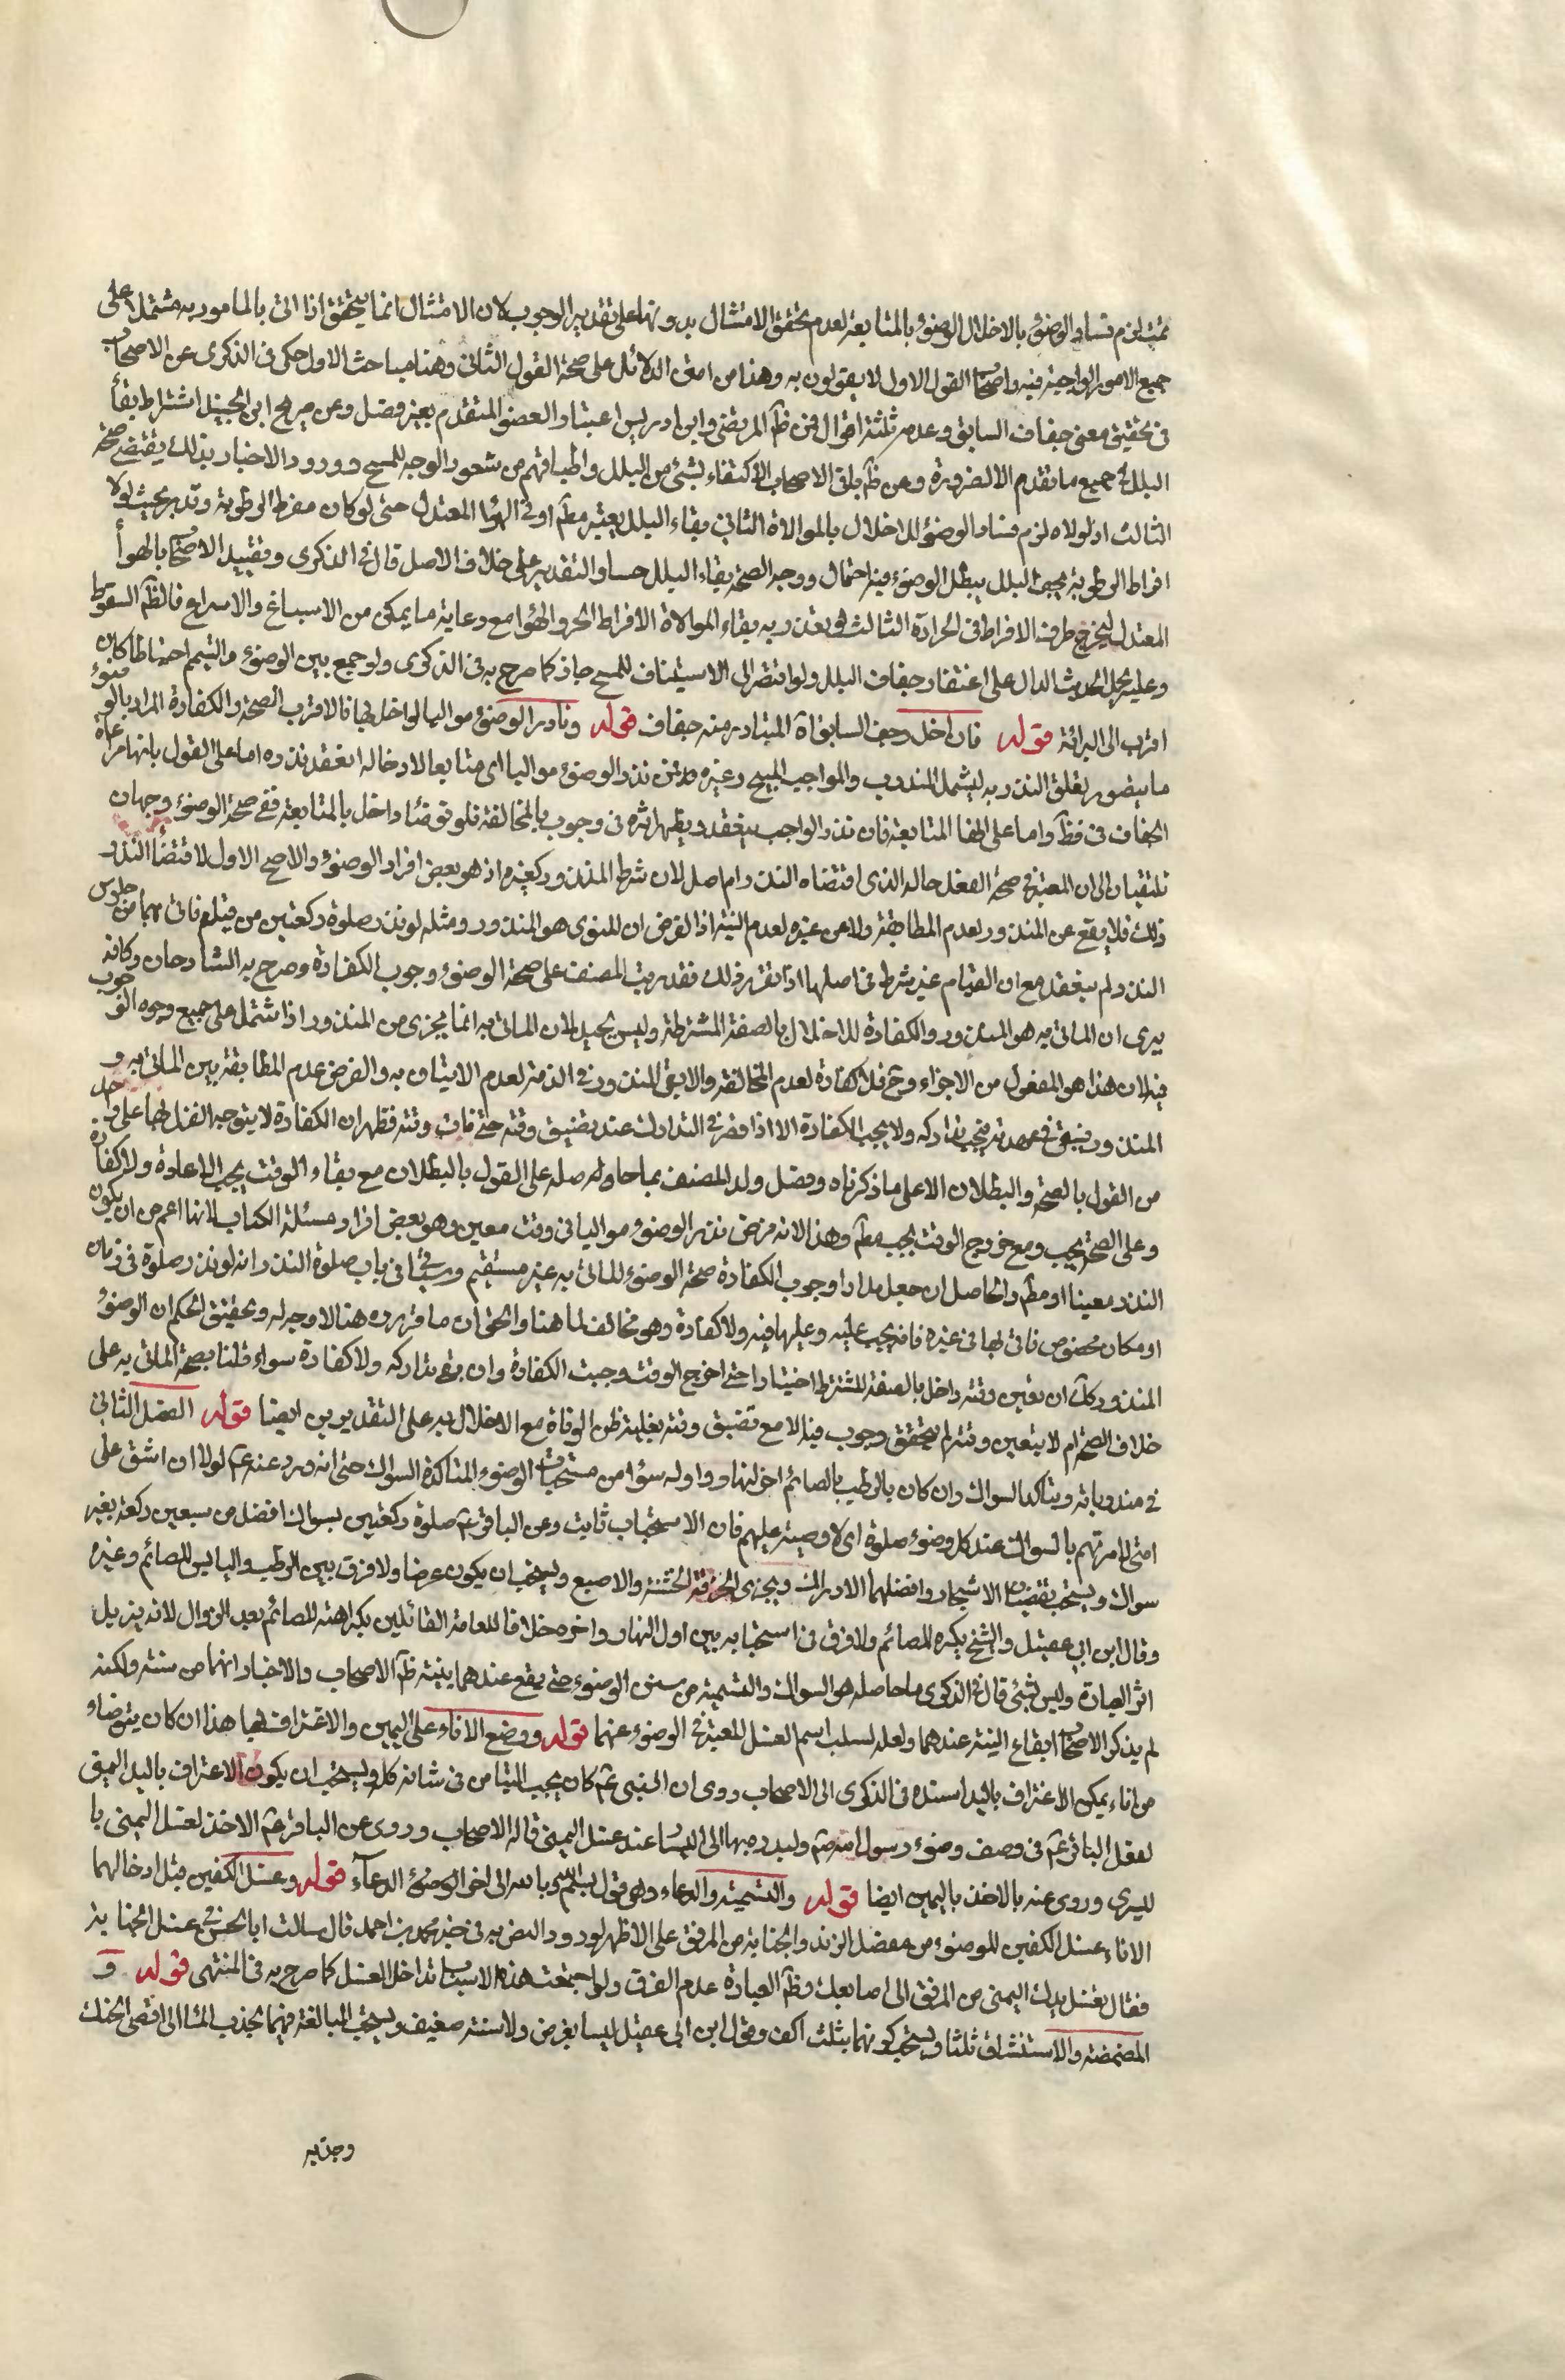 ثبت لزم فساد الوضوء بالاخلال الوضوء بالمتابعة لعدم تحقق الامتثال بدونها على تقدير الوجوب لان الامتثال انما يتحقق اذا اتى بالمامور به مشتملا على
جميع الامور الواجبة فيه واصحاب القول الاول لا يقولون به وهذا من امتن الدلائل على صحة القول الثانى وهنا مباحث الاول حكى فى الذكرى عن الاصحاب
فى تحقيق معنى جفاف السابق وعدمه ثلثة اقوال فمن ظ المرتضى وابن ادريس اعتبار العضو المتقدم بغير فصل وعن صريح ابن الجنيد اشتراط بقاء
البلل فى جميع ما تقدم الا لضرورة وعن ظ باقى الاصحاب الاكتفاء بشئ من البلل واطباقهم من شعور الوجه للمسح وورود الاخبار بذلك يقتضى صحة
الثالث اذ لولاه لزم فساد الوضوء للاخلال بالموالاة الثانى بقاء البلل يعتبر مط او فى الهواء المعتدل حتى لو كان مفرط الرطوبة وقدر بحيث لولا
افراط الرطوبة لجف البلل يبطل الوضوء فيه احتمال ووجه الصحة بقاء البلل حسا والتقدير على خلاف الاصل قال فى الذكرى وتقييد الاصحاب بالهواء
المعتدل ليخرج طرف الافراط فى الحرارة الثالث لو تعذر به بقاء الموالاة الافراط الحر والهواء مع رعاية ما يمكن من الاسباغ والاسراع فالظ السقوط
وعليه يحمل الحديث الدال على اغتفار جفاف البلل ولو افتقر الى الاستيناف للمسح جاز كما صرح به فى الذكرى ولو جمع بين الوضوء والتيمم احتياطا كان
اقرب الى البرائة قوله فان اخل وجف السابق اه المتبادر منه جفاف قوله وناذر الوضوء مواليا لو اخل بها فالاقرب الصحة والكفارة المراد بالوضوء
ما يتصور تعلق النذر به ليشمل المندوب والواجب المبيح وغيره فمتى نذر الوضوء مواليا اى متابعا لافعاله انعقد نذره اما على القول بانها مراعاة
الجفاف فى فظ واما على انها المتابعة فان نذر الواجب ينعقد ويظهر اثره فى وجوب بالمخالفة فلو توضأ واخل بالمتابعة ففى صحة الوضوء وجهان
يلتفتان الى ان المعتبر فى صحة الفعل حاله الذى اقتضاه النذر ام اصل لان شرط المنذور كغيره اذ هو بعض افراد الوضوء والاصح الاول لاقتضاء النذر
ذلك فلا يقع عن المنذور لعدم المطابقة ولا عن غيره لعدم النية اذ الفرض ان المنوى هو المنذور ومثله لو نذر صلوة ركعتين من قيام فاتى بهما من جلوس
النذر ولم ينعقد مع ان القيام غير شرط فى اصلها اذا تقرر ذلك فقد رتب المصنف على صحة الوضوء وجوب الكفارة وصرح به الشارحان وكانه
يرى ان الماتى به هو المنذور والكفارة للاخلال بالصفة المشترطة وليس بجيد لان الماتى به انما يجزى من المنذور اذا اشتمل على جميع وجوه الوجوب
فيه لان هذا هو المفعول من الاجزاء وح فلا كفارة لعدم المخالفة والا بقى المنذور فى الذمة لعدم الاتيان به والفرض عدم المطابقة بين الماتى به و
المنذور فيبقى فى عهدته فيجب تداركه ولا يجب الكفارة الا اذا قصر فى التدارك عند تضيق وقته حتى فات وقته فظهر ان الكفارة لا يتوجه القول بها على واحد
من القول بالصحة والبطلان الا على ما ذكرناه وفصل ولد المصنف بما حاصله على القول بالبطلان مع بقاء الوقت يجب الاعادة ولا كفارة
وعلى الصحة يجب ومع خروج الوقت يجب مط وهذا لانه فرض نذر الوضوء مواليا فى وقت معين وهو بعض افراد مسئلة الكتاب لانها اعم من ان يكون
النذر معينا او مط والحاصل ان جعل مدار وجوب الكفارة صحة الوضوء للماتى به غير مستقيم وسياتى فى باب صلوة النذر انه لو نذر صلوة فى زمان
او مكان مخصوص فاتى بها فى غيره فانه يجب عليه وعليها فيه ولا كفارة وهو مخالف لما هنا والحق ان ما قرره هنا لا وجه له وتحقيق الحكم ان الوضوء
المنذور كك ان تعين وقته واخل بالصفة المشترط اختيارا حتى خرج الوقت وجبت الكفارة وان بقى تداركه ولا كفارة سواء قلنا بصحة الماتى به على
خلاف الصحة ام لا يتعين وقته لم يتحقق وجوب فيه الا مع تضيق وقته بغلبة ظن الوفاة مع الاخلال به على التقديرين ايضا قوله الفصل الثانى
فى مندوباته ويتاكد السواك وان كان بالرطب بالصائم اخر النهار واوله سواء من مستحبات الوضوء المتاكدة السواك حتى انه ورد عنه عم لولا ان اشق على
امتى لامرتهم بالسواك عند كل وضوء صلوة اى لاوجبته عليهم فان الاستحباب ثابت وعن الباقر عم صلوة ركعتين بسواك افضل من سبعين ركعة بغير
سواك ويستحب بقضبان الاشجار وافضلها الاراك ويجزى الخرقة الخشنة والاصبع ويستحب ان يكون عرضا ولا فرق بين الرطب واليابس للصائم وغيره
وقال ابن ابى عقيل والشيخ يكره للصائم ولا فرق فى استحبابه بين اول النهار واخره خلافا للعامة القائلين بكراهته للصائم بعد الزوال لانه يزيل
اثر العبادة وليس بشئ قال فى الذكرى ما حاصله هو السواك والتسمية من سنن الوضوء حتى يقع عندهما بنية ظ الاصحاب والاخبار انهما من سننه ولكنه
لم يذكر الاصحاب ايقاع النية عندهما ولعله لسلب اسم الغسل المعتبر فى الوضوء عنهما قوله ووضع الاناء على اليمين والاغتراف بها هذا ان كان يتوضأ
من اناء يمكن الاغتراف باليد اسنده فى الذكرى الى الاصحاب روى ان النبى عم كان يحب التيامن فى شانه كله ويستحب ان يكون الاغتراف باليد اليمنى
لفعل الباقر عم فى وصف وضوء رسول الله صم وليدره بها الى اليسار عند غسل اليمنى قاله الاصحاب وروى عن الباقر عم الاخذ لغسل اليمنى با
ليسرى وروى عنه بالاخذ باليمين ايضا قوله والتسمية والدعاء وهى قول بسم الله وبالله الى اخر الوضوء الدعاء قوله وغسل الكفين قبل ادخالهما
الاناء غسل الكفين للوضوء من مفصل الزند والجنابة من المرفق على الاظهر لورود النص به فى خبر محمد بن احمد قال سالت ابا الحسن فى غسل الجنابة
فقال تغسل يدك اليمنى من المرفق الى اصابعك وظ العبادة عدم الفرق ولو اجتمعت هذه الاسباب تداخل الغسل كما صرح به فى المنتهى قوله و
المضمضة والاستنشاق ثلثا ويستحب كونهما بثلث اكف وقول ابن ابى عقيل ليسا بفرض ولا سنة ضعيف ويستحب المبالغة فيهما بجذب الماء الى اقصى الحنك
وجذبه